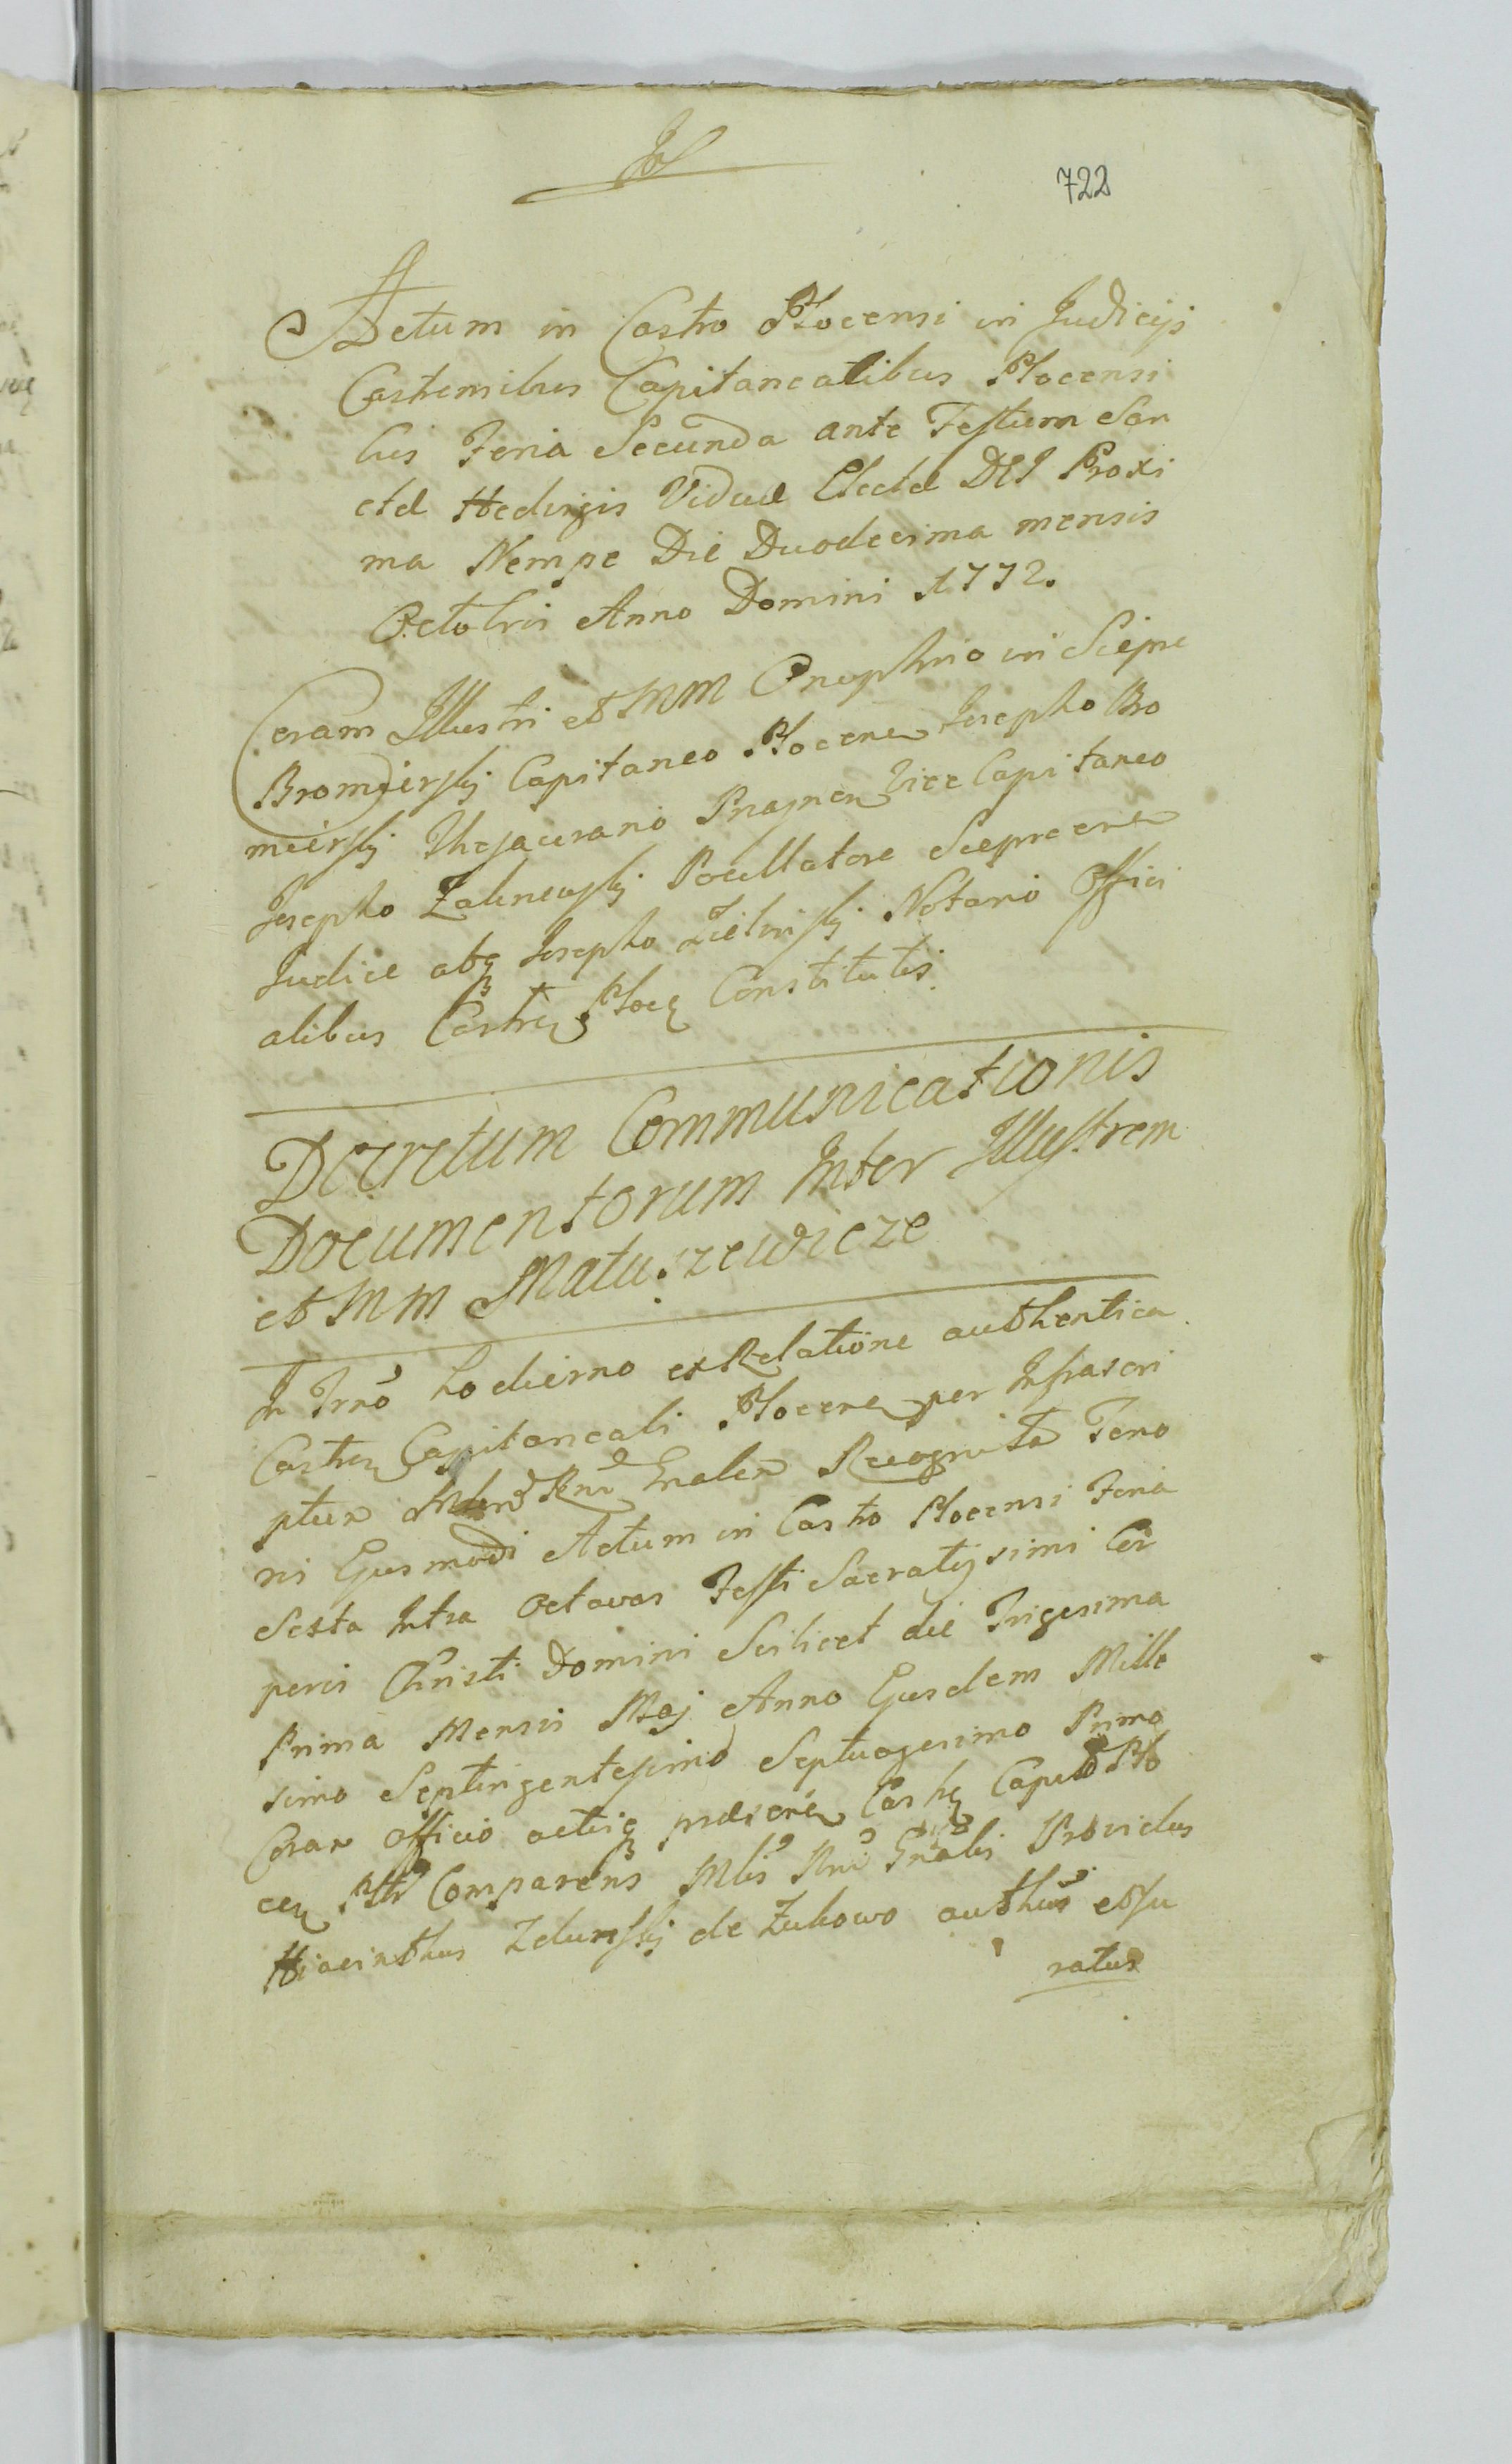 722
Actum in Castro Plocensi in Judicijs
Castrensibus Capitanealibus Plocensi
bus Feria Secunda ante Festum San
ctæ Hedvigis Viduæ Electæ DEI Proxi
ma Nempe Die Duodecima mensis
Octobris Anno Domini 1772.
Coram Illustri et MM Onuphrio in Sieprc
Bromierskj Capitaneo Plocen Josepho Bro
mierskj Thesaurario Vice Capitaneo
Josepho Zalewskj Pocillatore Sieprcen
Judice atq Josepho Zielinskj Notario Offici
alibus Castren Ploc Constitutis
Decretum Communicationis
Documentorum Inter Illustrem
et MM Matuszewicze
In Trno hodierno ex Relatione authentica
Castren Capitaneali Plocen per Infrascri
ptum Mlem Rni Gnalem Recognita Teno
ri Ejusmodi Actum in Castro Plocensi Feria
Sexta Intra Octavas Festi Sacratissimi Cor
poris Christi Domini Scilicet die Trigesima
Prima Mensis Maj Anno Ejusdem Mille
simo Septingentesimo Septuagesimo Primo
Coram Officio actisq præsen Castr Capit Plo
cen Pltr Comparens Mlis Rni Gnalis Providus
Hiacinthus Zdunskj de Zukowo authus et ju
ratus